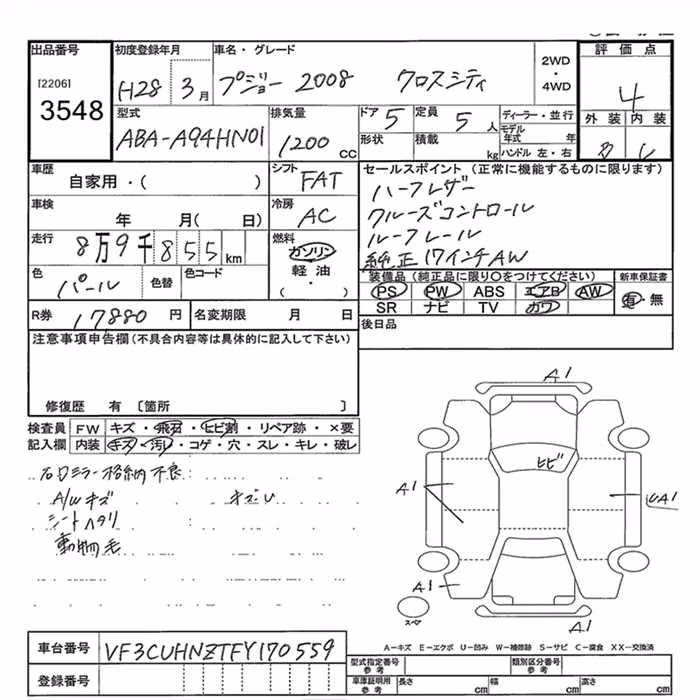 出品番号 初度登録年月 車名・グレード 評価点
[2206] 3548
H28 3月 プジョー 2008 クロスシティ 2WD・4WD 4
型式 排気量 ドア 5 定員 5人 ディーラー・並行 外装 内装
ABA-A94HN01 1200cc 形状 積載 kg モデル年式 年
ハンドル 左・右
車歴 シフト セールスポイント (正常に機能するものに限ります)
自家用・( ) FAT ハーフレザー
車検 冷房 クルーズコントロール
年 月( 日) AC ルーフレール
走行 燃料 純正17インチAW
8万9千855km ガソリン 装備品(純正品に限り○をつけてください) 新車保証書
色 パール 色替 色コード 軽油 PS PW ABS エアB AW 有・無
( ・ ) SR ナビ TV カワ
R券 17880円 名変期限 月 日 後日品
注意事項申告欄(不具合内容等は具体的に記入して下さい)
修復歴 有 〔箇所 〕
検査員 FW キズ・飛石・ヒビ割・リペア跡・×要
記入欄 内装 キズ・汚レ・コゲ・穴・スレ・キレ・破レ
右ドミラー格納不良
A/Wキズ
シートヘタリ
動物毛
A1
ヒビ
A1
UA1
A1
スペア
A1
A−キズ E−エクボ U−凹み W−補修跡 S−サビ C−腐食 XX−交換済
車台番号 VF3CUHNZTFY170559
登録番号
型式指定番号 参考 類別区分番号 参考
車庫証明用 参考 長さ cm 幅 cm 高さ cm